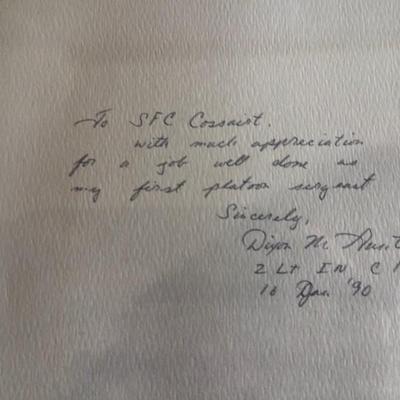 To SFC Cossairt.
with much appreciation
for a job well done as
my first platoon sergeant
Sincerely,
Dixon M.
2 Lt IN
16 '90